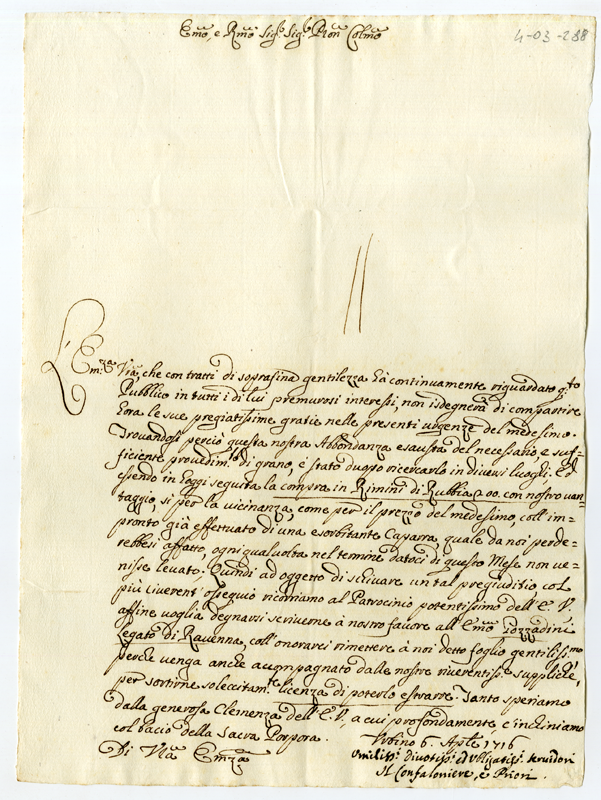 Emo, e Rmo Sig.r Sig.r Pron Colmo
4-03-288
L'Em.za Vra, che con tratti di soprafina gentilezza hà continuamente riguardato q.to
Publico in tutti i di lui premurosi interessi, non isdegnerà di compartire
hora le sue pregiatissime gratie nelle presenti urgenze del medesimo.
Trovandosi perciò questa nostra Abbondanza esausta del necessario, e suf=
ficiente provedim.to di grano, è stato duopo ricercarlo in diversi luoghi; Ed
essendo in hoggi seguita la compra in Rimini di Rubbia 200. con nostro van=
taggio, si per la vicinanza, come per il prezzo del medesimo, coll'im=
pronto già effettuato di una esorbitante Caparra, quale da noi perde=
rebbesi affatto, ogni qual volta nel termine datoci di questo Mese non ve=
nisse levato. Quindi ad oggetto di schivare un tal pregiuditio col
più riverent' ossequio ricorriamo al Patrocinio potentissimo dell'E. V.
affine voglia degnarsi scriverne à nostro favore all'Emo Gozzadini
Legato di Ravenna, coll'onorarci rimettere à noi detto foglio gentiliss.mo
perche venga anche accompagnato dalle nostre riverentiss.e suppliche,
per sortirne sollecitam.te licenza di poterlo estrarre. Tanto speriamo
dalla generosa Clemenza dell'E. V., a cui profondamente c'inchiniamo
col bacio della Sacra Porpora.
Di Vra Emza
Urbino 6. Aple 1716
Umiliss.i Divotiss.i ed Obligatiss.i Servidori
Il Confaloniere, e Priori.